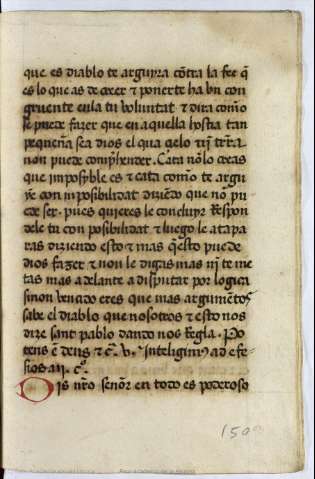 que es diablo te arguyra cõtra la fee q̃
es lo que as de creer τ ponerte ha vn con
gruente en la tu voluntat τ dira como
se puede fazer que en aquella hostia tan
pequeña sea dios el qual çielo nj̃ trr̃a
non puede conp̃hender. Cata nõ lo creas
que inposyble es τ cata como te argu
ye con inposibilidat diziẽdo que nõ pu
ede ser. pues quieres le concluyr Respon
dele tu con posibilidat τ luego le atapa
ras diziendo esto τ mas q̃ esto puede
dios fazer τ non le digas mas nj̃ te me
tas mas adelante a disputar por logica
sinon vençido eres que mas argumẽtos
sabe el diablo que nosotros τ esto nos
dize sant pablo dando nos Regla. Po
tens ẽ deus τ c̃.
ad efe
sios
Dios nr̃o señor en todo es poderoso
150